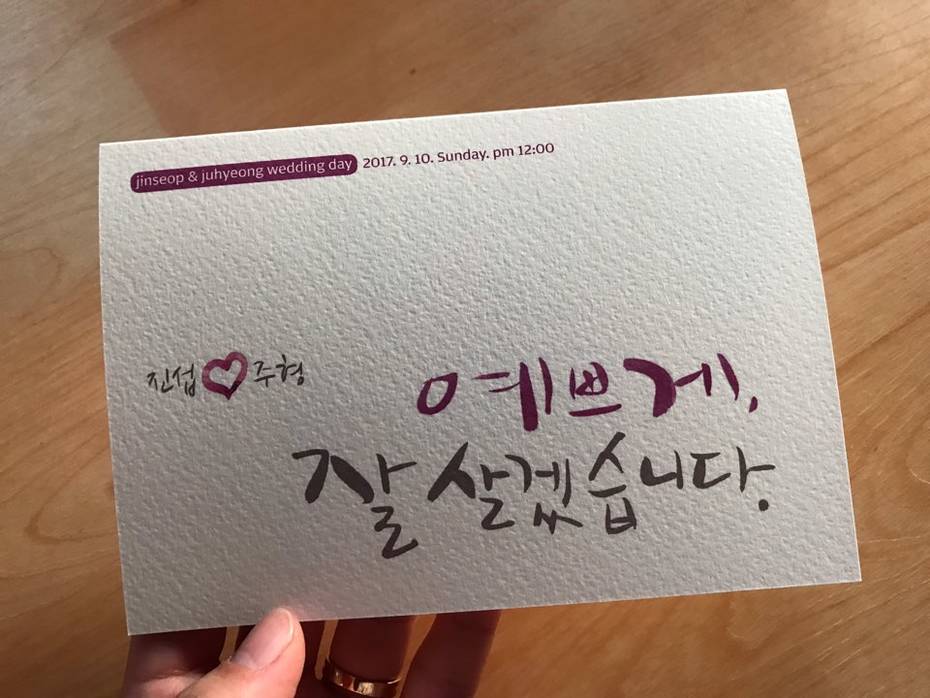 jinseop & juhyeong wedding day 2017. 9. 10. Sunday. pm 12:00
진섭 ♡ 주형
예쁘게,
잘 살겠습니다.